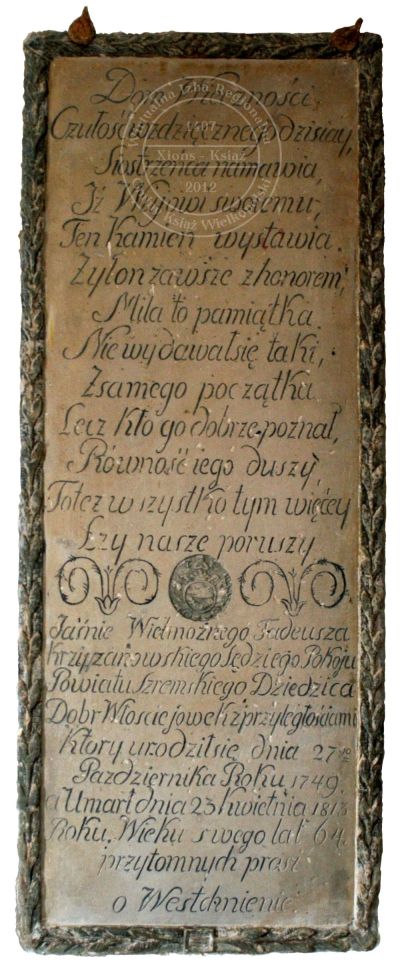 Dom Wieczności
Czułość wzdzięcznego dzisiay,
Siostrzenca namawia,
Jż Wuiowi swoiemu,
Ten Kamień wystawia.
Zył on zawsze z honorem,
Miła to pamiątka.
Nie wydawał się taki,
Zsamego początku
Lecz kto go dobrze poznał,
Równość iego duszy,
Toteż wszystko tym więcey
Łzy nasze poruszy
Jaśnie Wielmożnego Tadeusza
Krzyżanowskiego Sędziego Pokoju
Powiatu Szremskiego Dziedzica
Dobr Włosciejowek z przyległościami
który urodził się dnia 27go
Pazdziernika Roku 1749.
a Umarł dnia 23 kwietnia 1813
Roku. Wieku swego lat 64.
przytomnych prosi
o Westchnienie.
Wirtualna Izba Regionalna
1407
Xions - Książ
2012
Książ Wielkopolski